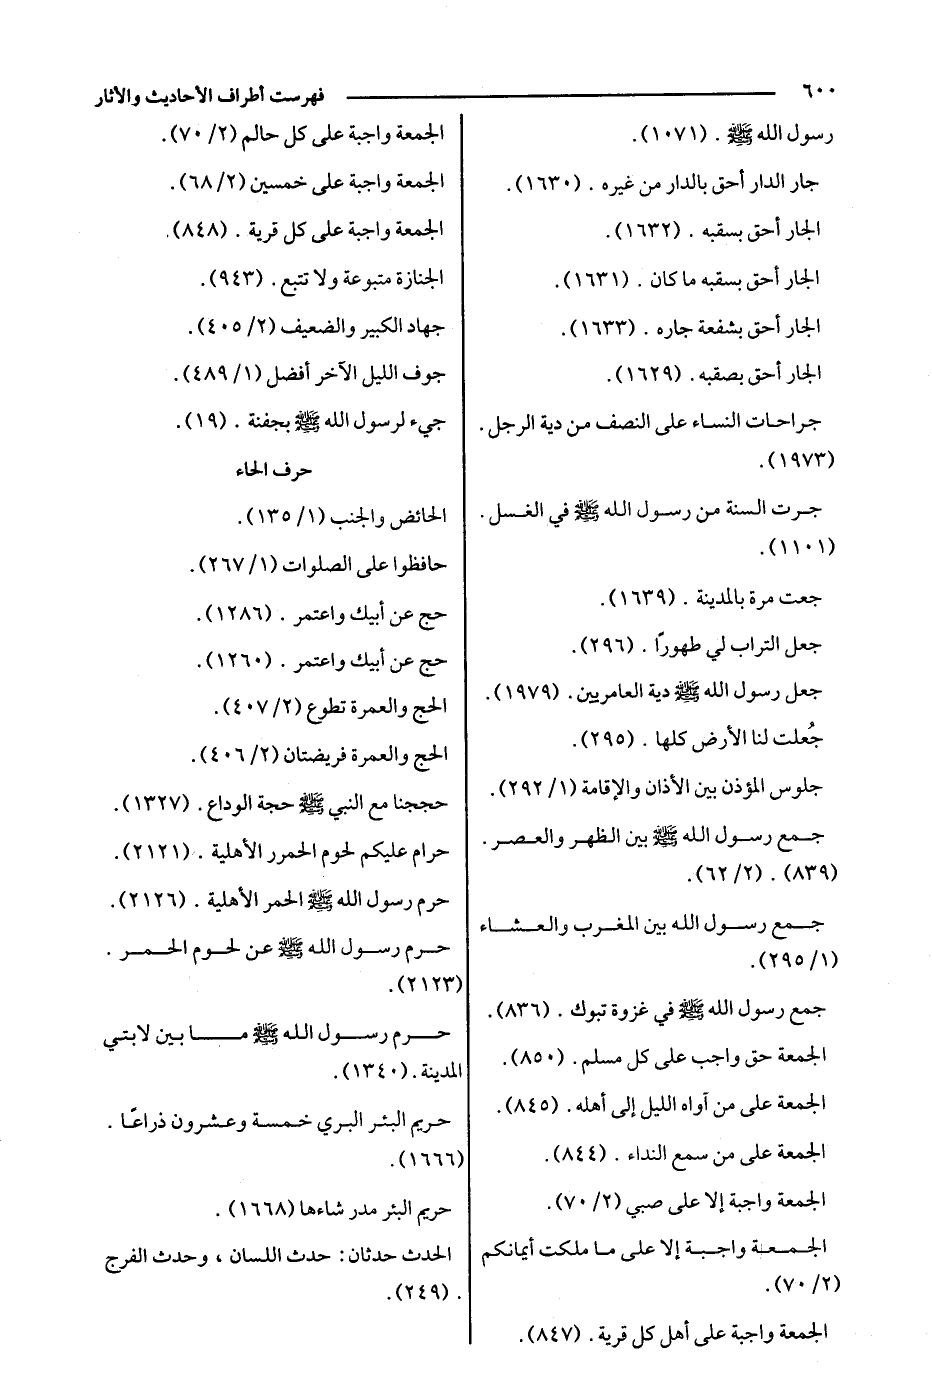 ٦٠٠ فهرست أطراف الأحاديث والآثار
رسول الله ﷺ . (١٠٧١).
جار الدار أحق بالدار من غيره . (١٦٣٠).
الجار أحق بسقبه . (١٦٣٢).
الجار أحق بسقبه ما كان . (١٦٣١).
الجار أحق بشفعة جاره . (١٦٣٣).
الجار أحق بصقبه. (١٦٢٩).
جراحات النساء على النصف من دية الرجل.
(١٩٧٣).
جرت السنة من رسول الله ﷺ في الغسل.
(١١٠١).
جعت مرة بالمدينة . (١٦٣٩).
جعل التراب لي طهورًا . (٢٩٦).
جعل رسول الله ﷺ دية العامريين. (١٩٧٩).
جُعلت لنا الأرض كلها . (٢٩٥).
جلوس المؤذن بين الأذان والإقامة (١/ ٢٩٢).
جمع رسول الله ﷺ بين الظهر والعصر.
(٨٣٩) . (٢/ ٦٢).
جمع رسول الله بين المغرب والعشاء
(١/ ٢٩٥).
جمع رسول الله ﷺ في غزوة تبوك . (٨٣٦).
الجمعة حق واجب على كل مسلم. (٨٥٠).
الجمعة على من آواه الليل إلى أهله. (٨٤٥).
الجمعة على من سمع النداء . (٨٤٤).
الجمعة واجبة إلا على صبي (٢/ ٧٠).
الجمعة واجبة إلا على ما ملكت أيمانكم
(٢/ ٧٠).
الجمعة واجبة على أهل كل قرية. (٨٤٧).
الجمعة واجبة على كل حالم (٢/ ٧٠).
الجمعة واجبة على خمسين (٢/ ٦٨).
الجمعة واجبة على كل قرية . (٨٤٨).
الجنازة متبوعة ولا تتبع. (٩٤٣).
جهاد الكبير والضعيف (٢/ ٤٠٥).
جوف الليل الآخر أفضل (١/ ٤٨٩).
جيء لرسول الله ﷺ بجفنة . (١٩).
حرف الحاء
الحائض والجنب (١/ ١٣٥).
حافظوا على الصلوات (١/ ٢٦٧).
حج عن أبيك واعتمر . (١٢٨٦).
حج عن أبيك واعتمر . (١٢٦٠).
الحج والعمرة تطوع (٢/ ٤٠٧).
الحج والعمرة فريضتان (٢/ ٤٠٦).
حججنا مع النبي ﷺ حجة الوداع. (١٣٢٧).
حرام عليكم لحوم الحمرر الأهلية . (٢١٢١).
حرم رسول الله ﷺ الحمر الأهلية . (٢١٢٦).
حرم رسول الله ﷺ عن لحوم الحمر .
(٢١٢٣).
حرم رسول الله ﷺ ما بين لابتي
المدينة. (١٣٤٠).
حريم البئر البري خمسة وعشرون ذراعًا .
(١٦٦٦).
حريم البئر مدر شاءها (١٦٦٨) .
الحدث حدثان: حدث اللسان ، وحدث الفرج
. (٢٤٩).